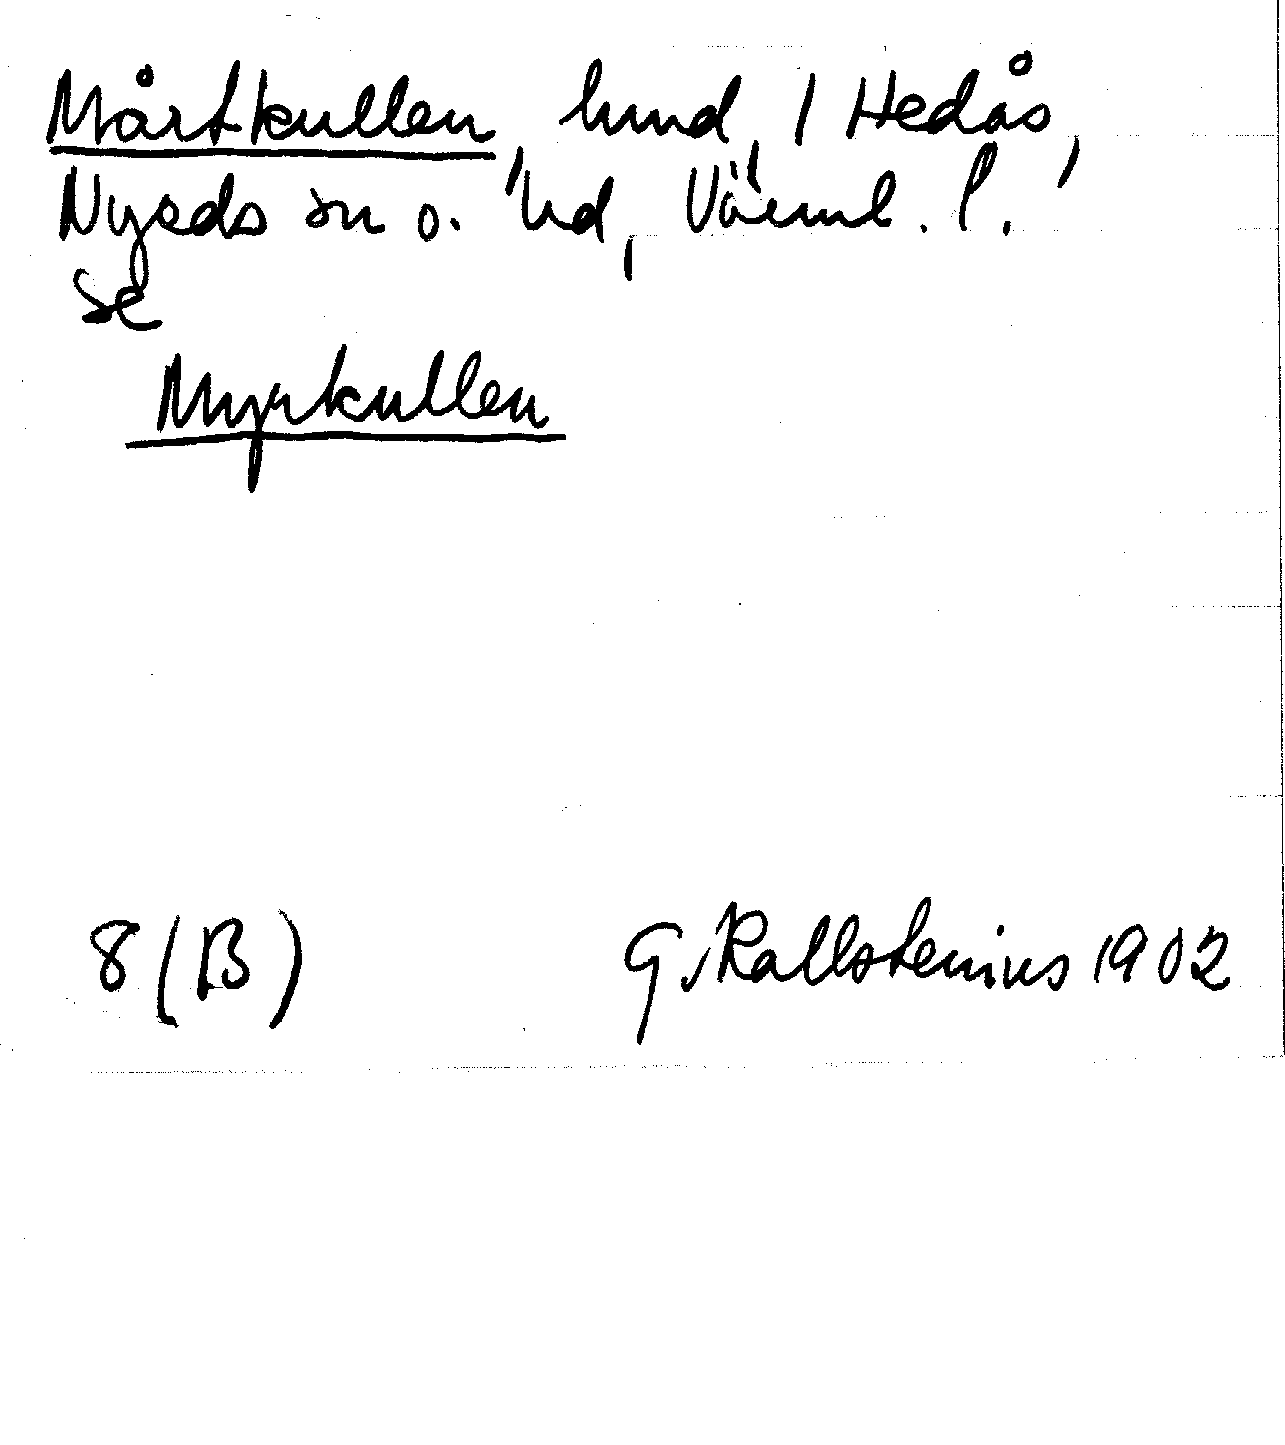 Mårtkullen, hmd, 1 Hedås,
Nyeds sn o. hd, Värml. l.
se
Myrkullen
8 (B) G. Kallstenius 1902